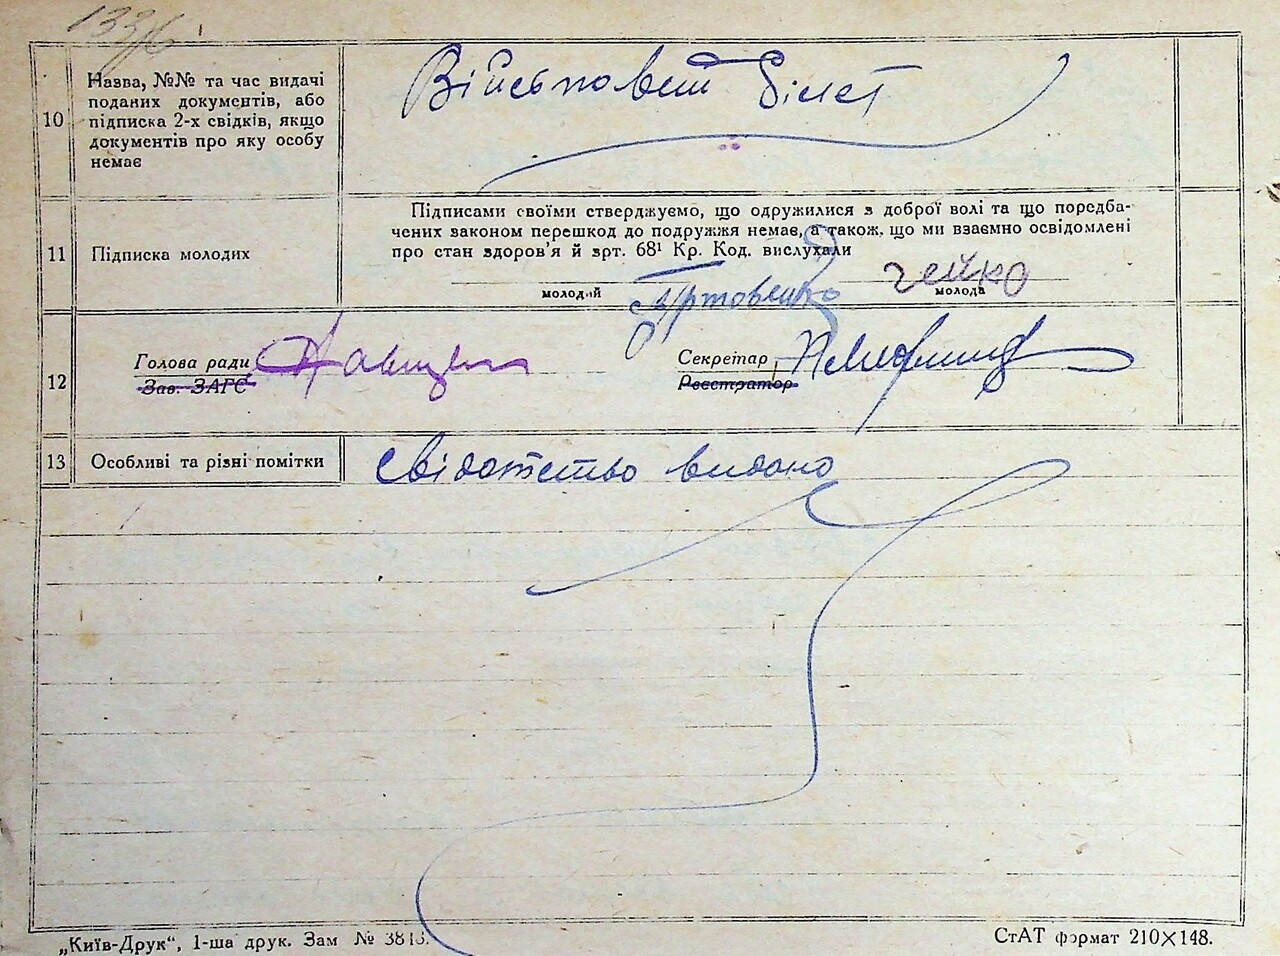 133/6
10
Назва, №№ та час видачі
поданих документів, або
підписка 2-х свідків, якщо
документів про яку особу
немає
Військовий білет
11
Підписка молодих
Підписами своїми стверджуємо, що одружилися з доброї волі та що поредба-
чених законом перешкод до подружжя немає, а також, що ми взаємно освідомлені
про стан здоров'я й зрт. 68¹ Кр. Код. вислухали
молодий
Гейко
молода
12
Голова ради
Зав. ЗАГС
Секретар
Реєстратор
13
Особливі та різні помітки
Свідотство видано
„Київ-Друк“, 1-ша друк. Зам № 3813.
СтАТ формат 210×148.